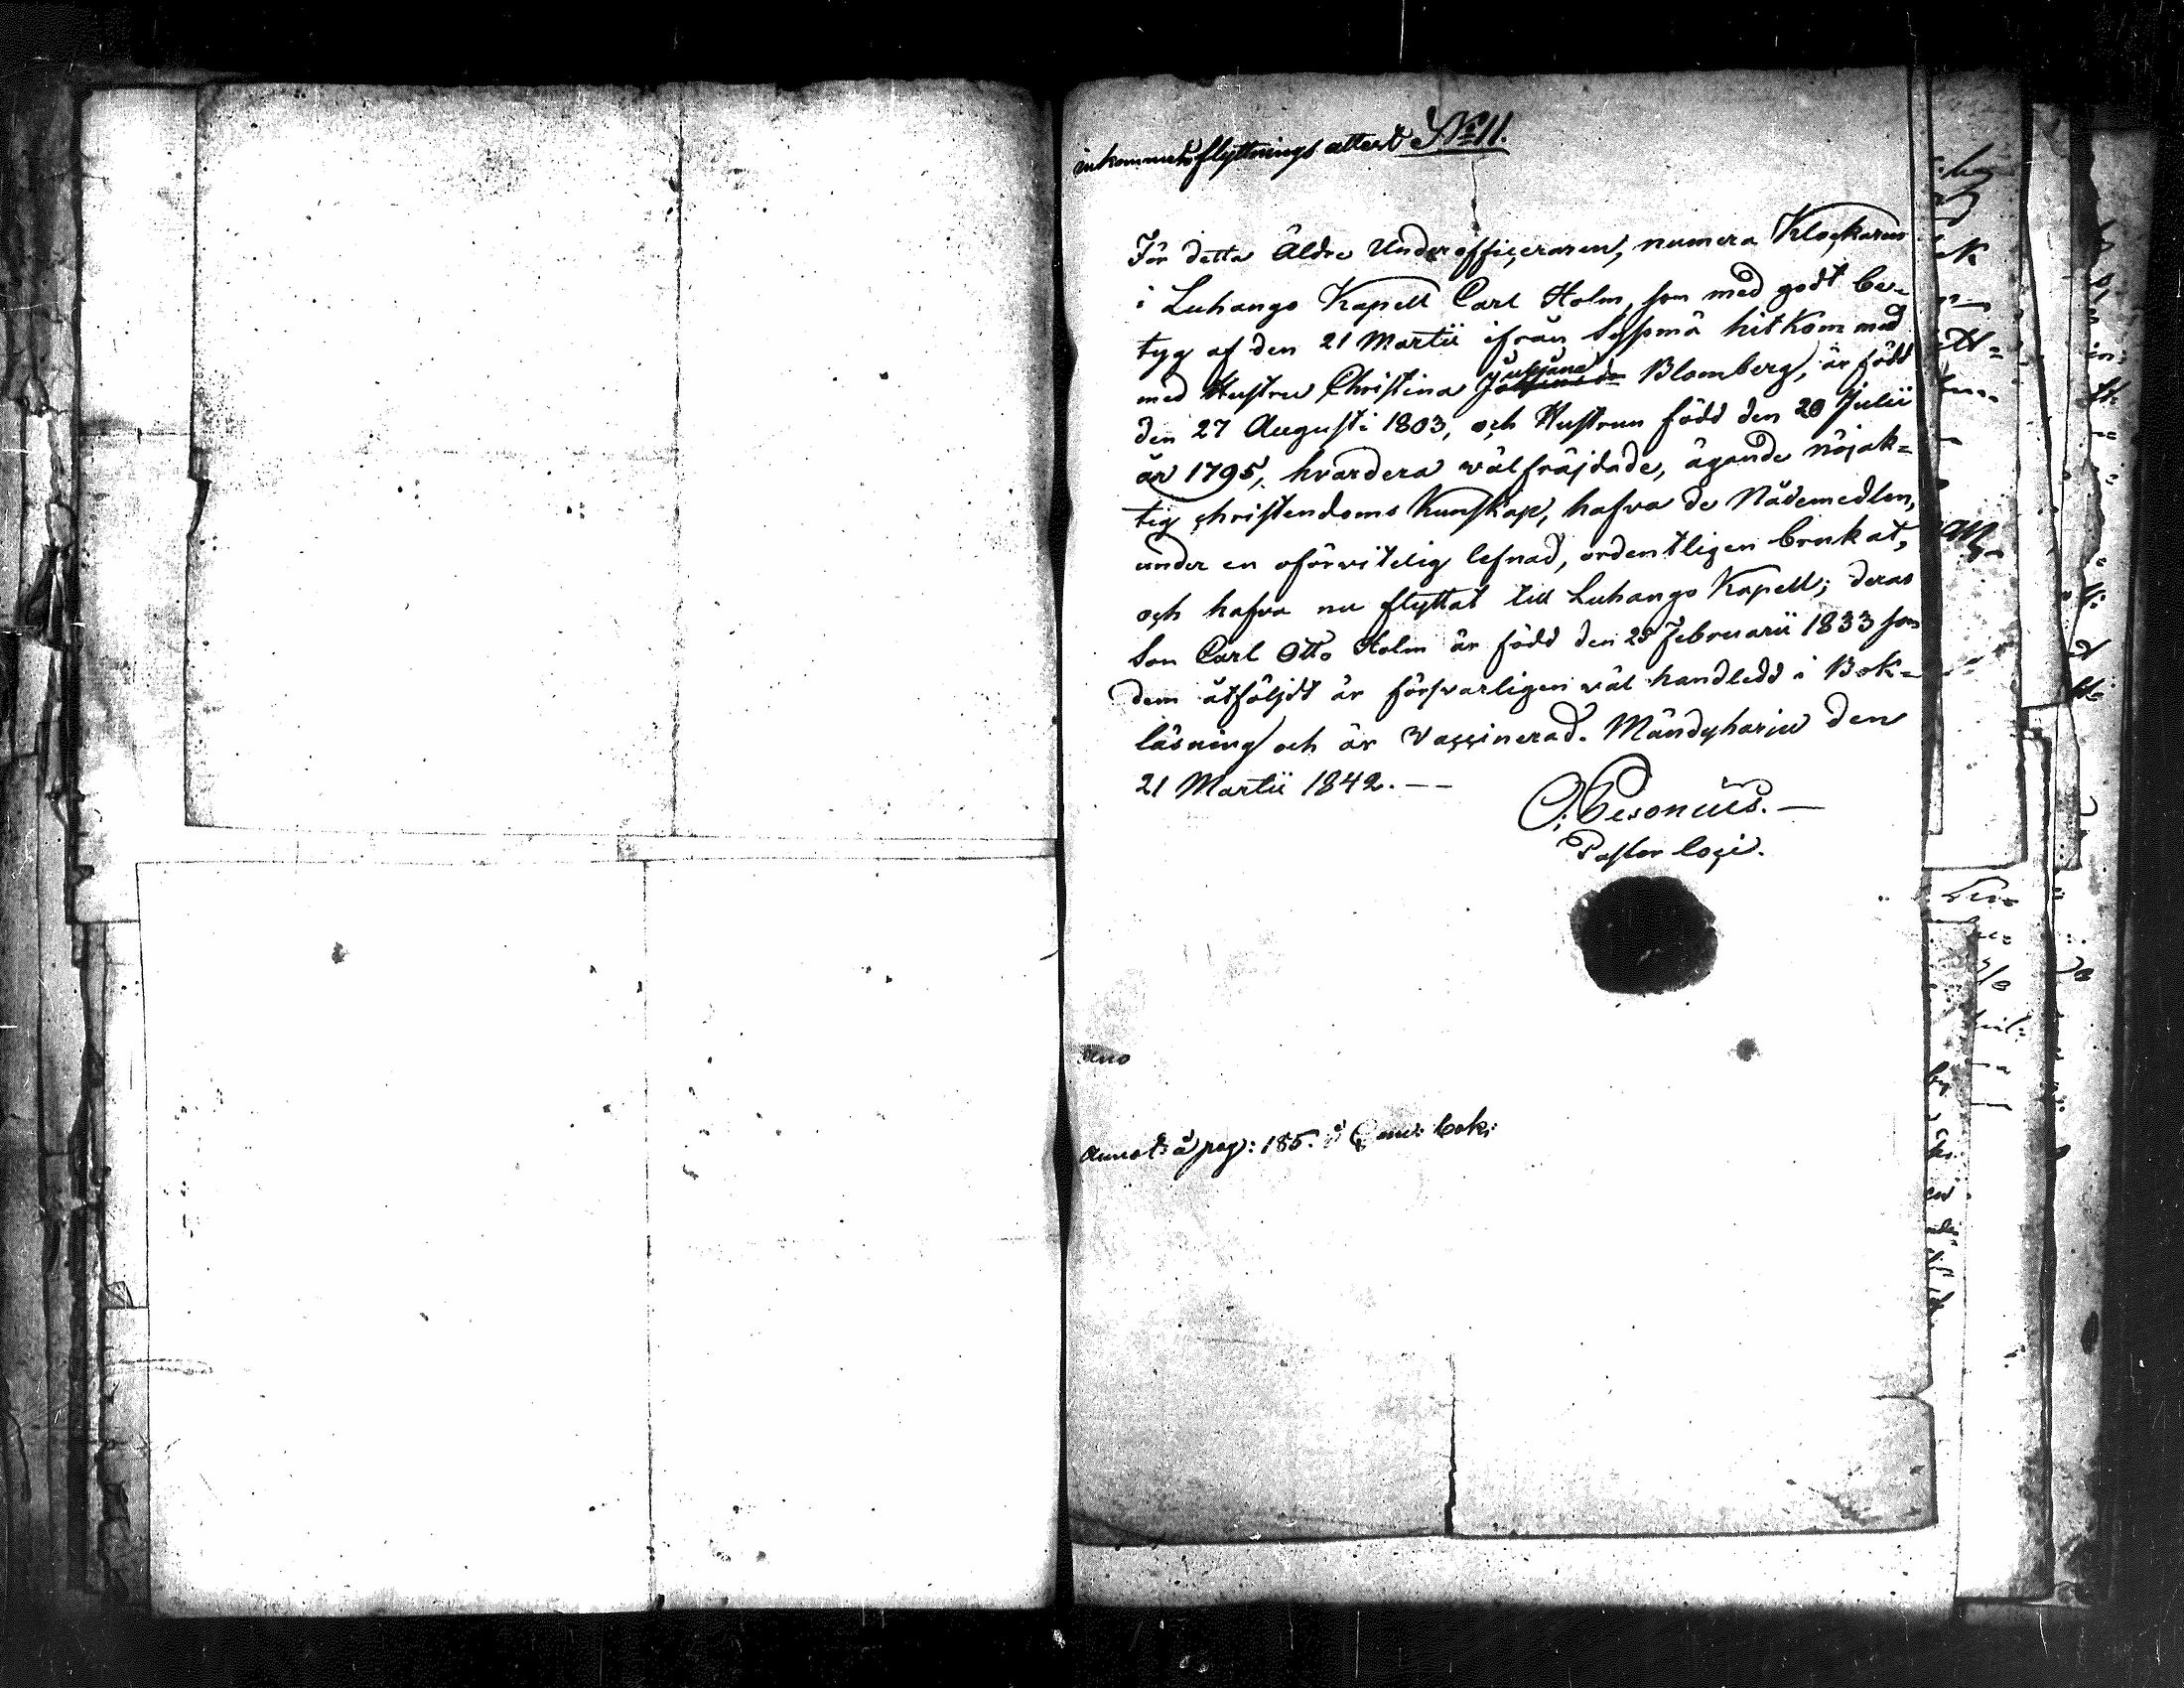 inkommet flyttnings attest N:o 11.
För detta Äldre Underofficeraren, numera Klockaren
i Luhango Kapell Carl Holm, som med godt be-
tyg af den 21 Martii ifrån Sysmä hitkom med
med Hustru Christina Juliana Blomberg, är född
den 27 Augusti 1803, och Hustrun född den 20 Julii
år 1795, hvardera wälfräjdade, ägande nöjak=
tig christendoms Kunskap, hafva de Nådemedlen,
under en oförvitelig lefnad, ordentligen brukat,
och hafva nu flyttat till Luhango Kapell; deras
Son Carl Otto Holm är född den 28 Februarii 1833 som
dem åtföljdt är försvarligen väl handledd i Bok=
läsning och är Vaccinerad. Mändyharju den
21 Martii 1842. --
Pastor loci.
Anno
Annot: å pag: 185. i Com: bok: